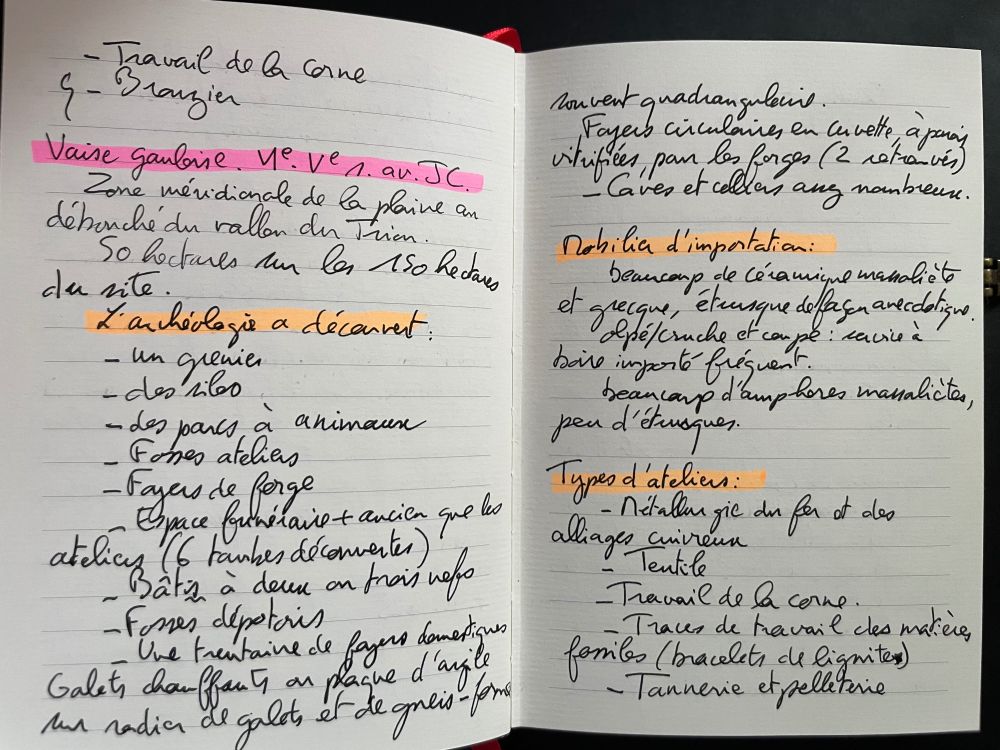 - Travail de la corne
- Bronzier
Vaise gauloise. VIe. Ve s. av. JC.
Zone méridionale de la plaine au
débouché du vallon du Trion.
50 hectares sur les 150 hectares
du site.
L'archéologie a découvert :
- un grenier
- des silos
- des parcs à animaux
- Fosses ateliers
- Foyers de forge
- Espace funéraire + ancien que les
ateliers (6 tombes découvertes)
- Bâtis à deux ou trois nefs
- Fosses dépotoirs
- Une trentaine de foyers domestiques
Galets chauffants ou plaque d'argile
sur radier de galets et de gneis - forme
souvent quadrangulaire.
Foyers circulaires en cuvette, à parois
vitrifiées, pour les forges (2 retrouvés)
- Caves et celliers assez nombreux.
Mobilier d'importation :
beaucoup de céramique massaliète
et grecque, étrusque de façon anecdotique.
olpé/cruche et coupe : service à
boire importé fréquent.
beaucoup d'amphores massaliètes,
peu d'étrusques.
Types d'ateliers :
- Métallurgie du fer et des
alliages cuivreux
- Textile
- Travail de la corne.
- Traces de travail des matières
fossiles (bracelets de lignite)
- Tannerie et pelleterie